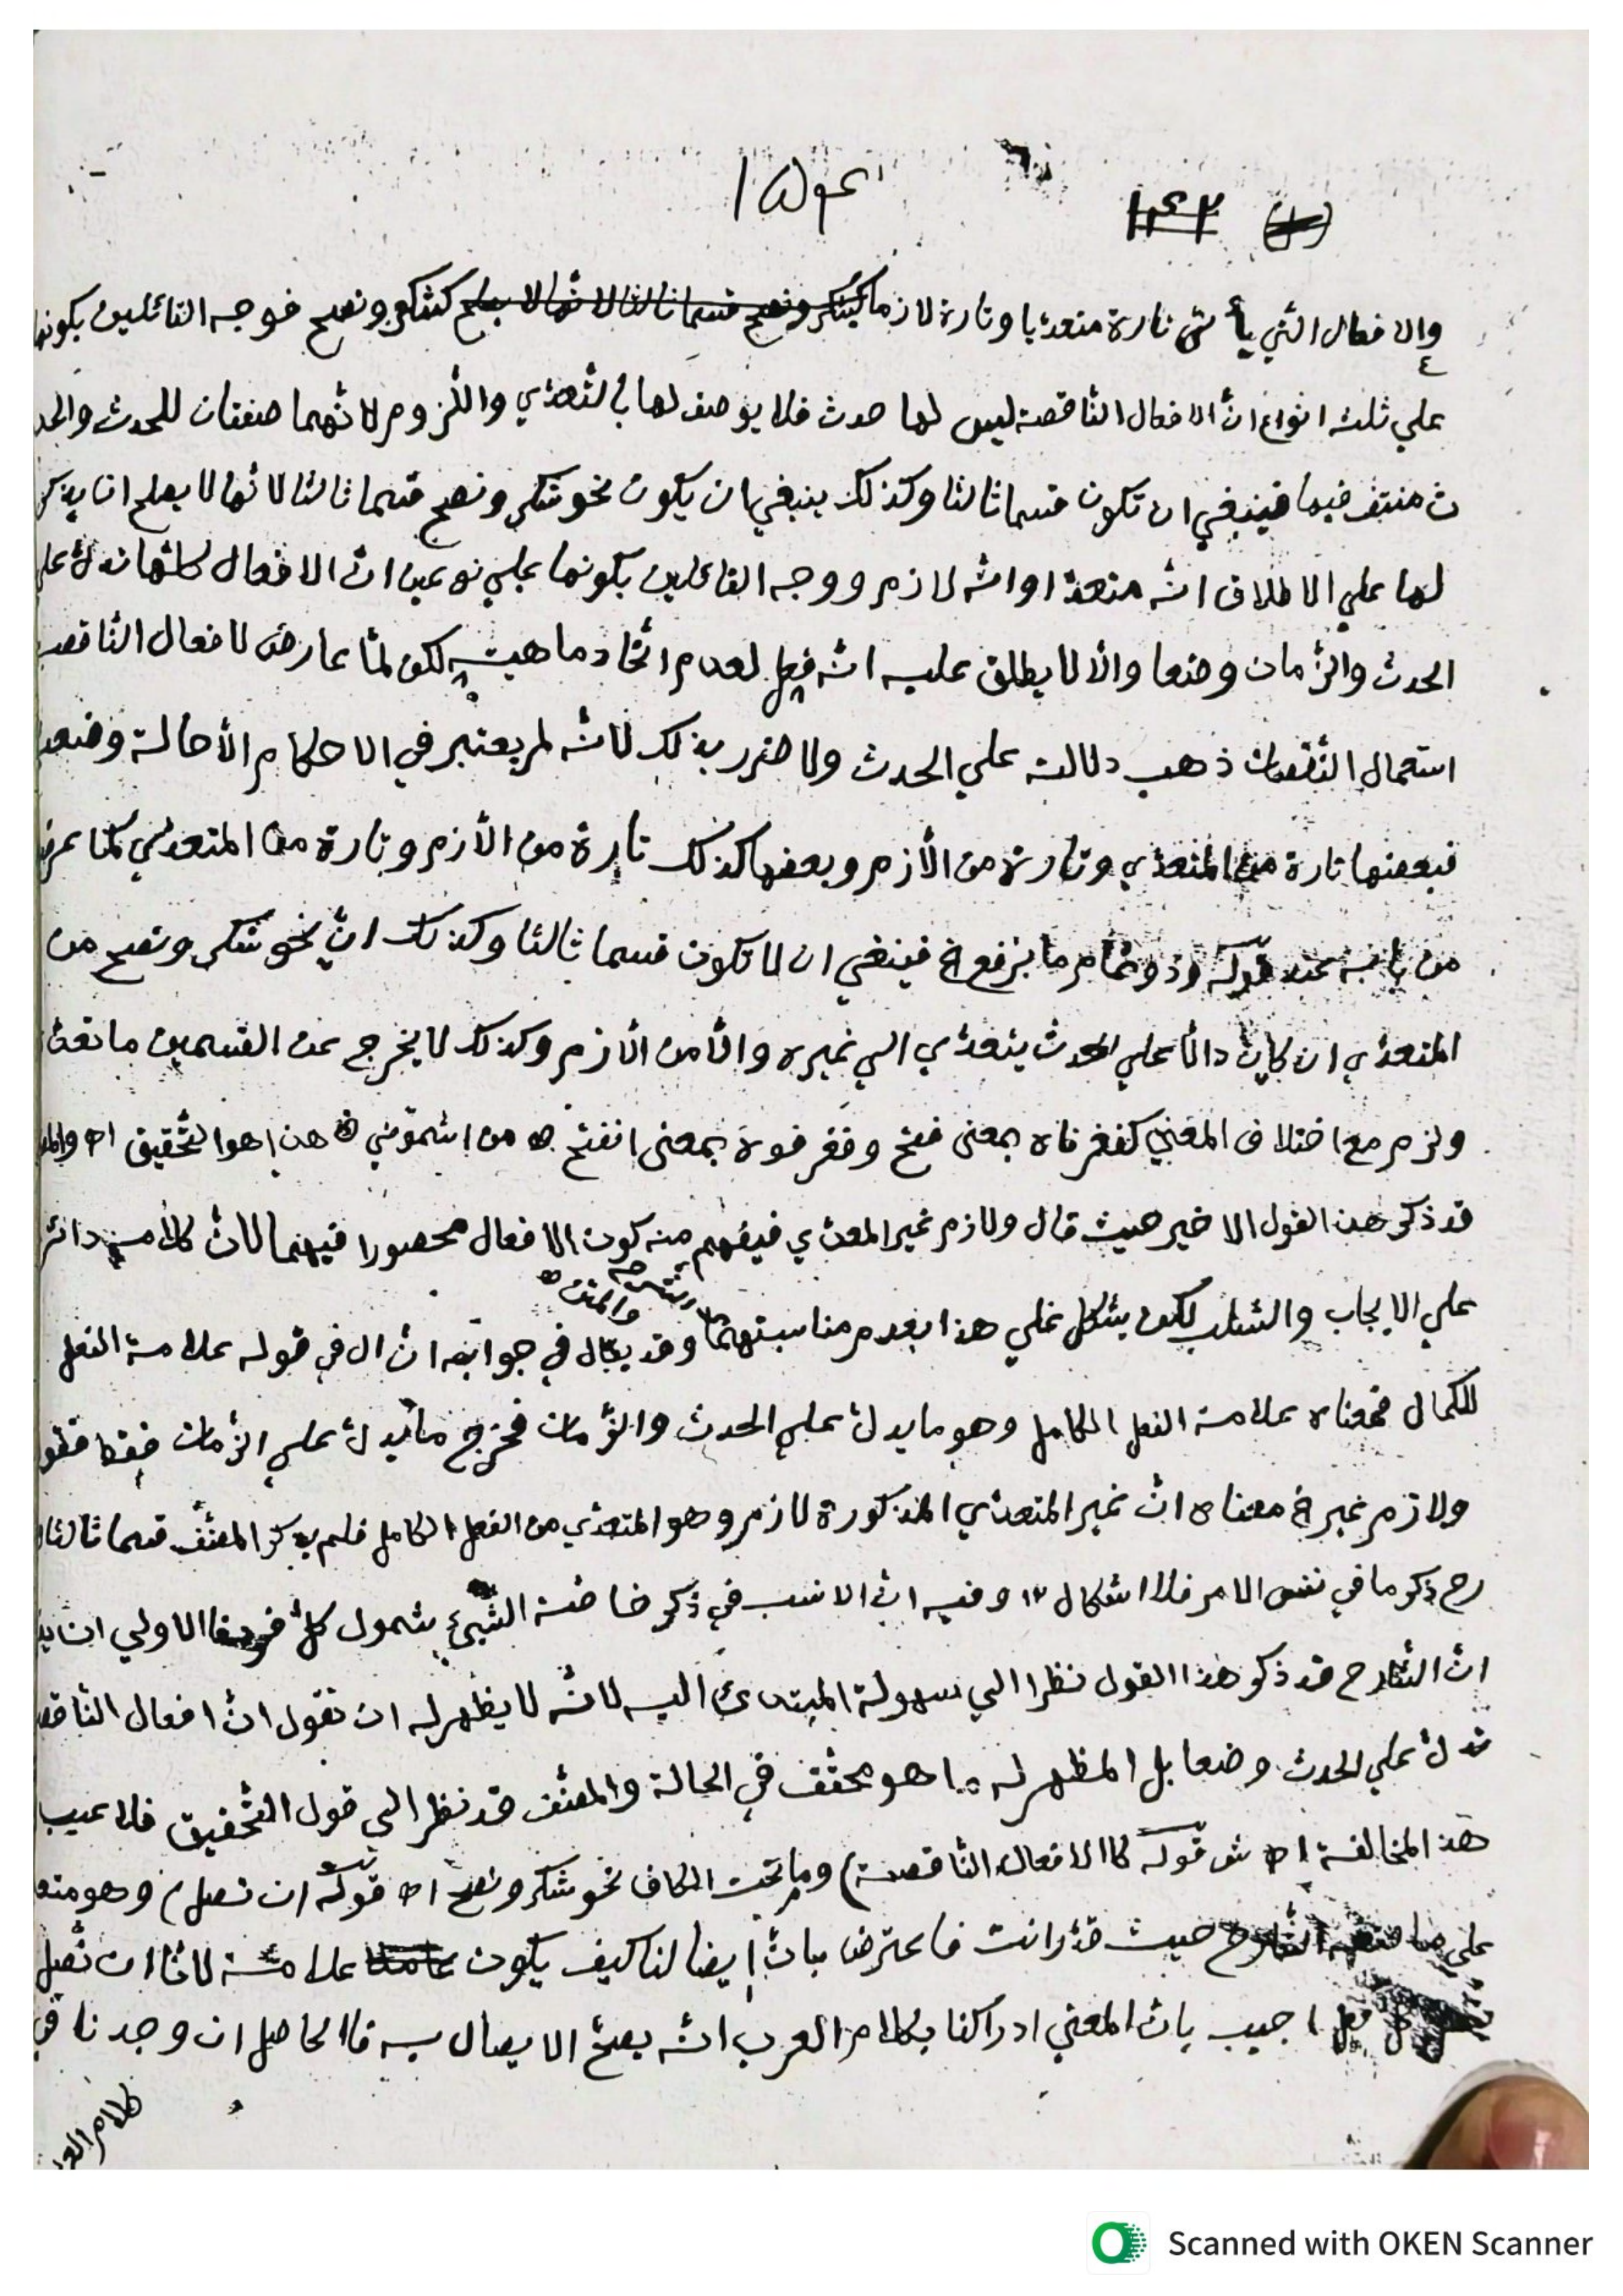 ١٥١
١٤٢
والافعال التي يأتي تارة متعديا وتارة لازما كشكر ونصح فوجه القائلين بكونها
علي ثلثه انواع انّ الافعال النّاقصة ليس لها حدث فلا يوصف لها بالتّعدّي واللّزوم لانّهما صفتان للحدث والحد
ث منتف فيها فينبغي ان تكون قسما ثالثا وكذلك ينبغي ان يكون نحو شكر ونصح قسما ثالثا لانّها لا يصلح ان يذكر
لها علي الاطلاق انّه متعدّ او انّه لازم ووجه القائلين بكونها علي نوعين انّ الافعال كلّها تدلّ علي
الحدث والزّمان وضعا والّا لا يطلق عليه انّه فعل لعدم اتّحاد ماهيته لكن لمّا عارض لافعال النّاقصة
استعمال النّقصان ذهب دلالته علي الحدث ولا ضرر بذلك لانّه لم يعتبر في الاحكام الّا حالة وضعه
فبعضها تارة من المتعدّي وتارة من الّازم وبعضها كذلك تارة من الّازم وتارة من المتعدّي كما عرف
من بابه عند قوله وذو تمام ما برفع اخ فينبغي ان لا تكون قسما ثالثا وكذلك انّ نحو شكر ونصح من
المتعدّي ان كان دالّا علي الحدث يتعدّي الي غيره والّا من الّازم وكذلك لا يخرج عن القسمين ما تعدّي
ولزم مع اختلاف المعني كفغر فاه بمعنى فتح وفغر فوه بمعنى انفتح اه من اشموني هذا هو التّحقيق اه والم
قد ذكر هذ القول الاخير حيث قال ولازم غير المعدّي فيفهم منه كون الافعال محصورا فيهما لانّ كلامه دائر
علي الايجاب والسّلب لكن يشكل علي هذا بعدم مناسبتهما وقد يقال في جوابه انّ ال في قوله علامة الفعل
والمتن
للكمال فمعناه علامة الفعل الكامل وهو ما يدلّ علي الحدث والزّمان فخرج ما يدلّ علي الزّمان فقط فقو
ولازم غير اخ معناه انّ غير المتعدّي المذكورة لازم وهو المتعدّي من الفعل الكامل فلم يذكر المصنّف قسما ثالثا
رح ذكر ما في نفس الامر فلا اشكال ١٢ وفيه انّ الانسب في ذكر خاصّة الشّيئ شمول كلّ فالاولي ان
انّ الشّارح قد ذكر هذا القول نظرا الي سهولة المبتدئ اليه لانّه لا يظهر له ان نقول انّ افعال النّاقصة
تدلّ علي الحدث وضعا بل المظهر له ما هو محقّق في الحالة والمصنّف قد نظر الي قول التّحقيق فلا عيب
هذ المخالفة اه قوله كالافعال النّاقصة) وما تحت الكاف نحو شكر ونصح اه قوله ان تصل) وهو
علي حيث قدّر انت فاعترض بانّ ايضا لنا كيف يكون علامة لانّا ان نصل
كل فعل اجيب بانّ المعني ادراكنا بكلام العرب انّه يصحّ الايصال به فالحاصل ان وجدنا في
كلام العر
Scanned with OKEN Scanner